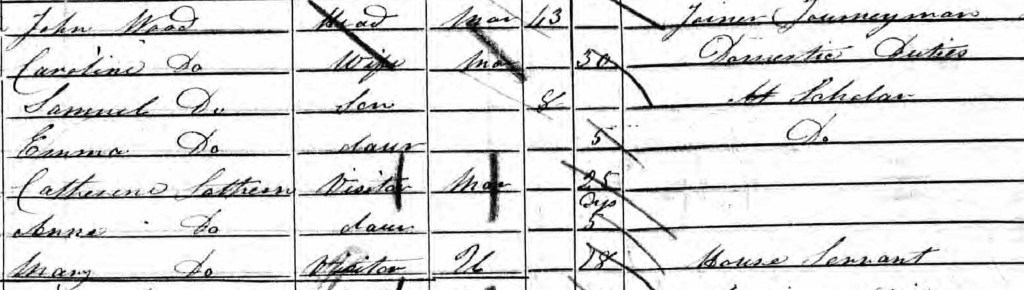 John Wood Head Mar 43 Joiner Journeyman
Caroline Do Wife Mar 50 Domestic Duties
Samuel Do Son 8 At Scholar
Emma Do daur 5 Do
Catherine Visitor Mar 25
Anne Do daur Dys 5
Mary Do Visitor U 28 House Servant